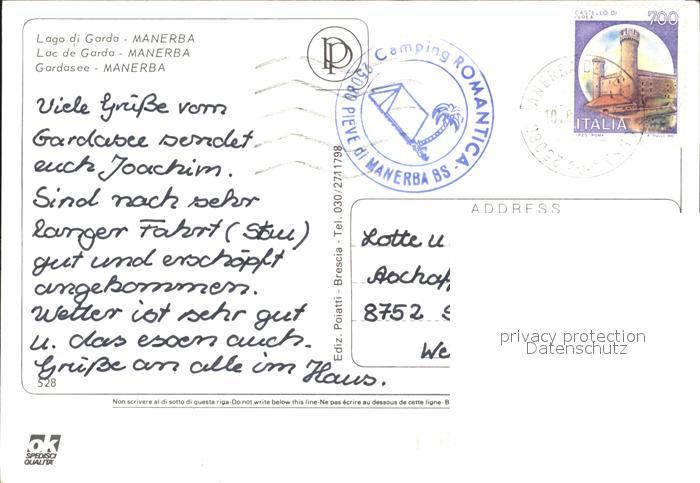 Lago di Garda - MANERBA
Lac de Garda - MANERBA
Gardasee - MANERBA
Viele Grüße vom
Gardasee sendet
euch Joachim.
Sind nach sehr
langer Fahrt (Stau)
gut und erschöpft
angekommen.
Wetter ist sehr gut
u. das essen auch.
Grüße an alle im Haus.
528
Ediz. Poiatti - Brescia - Tel. 030/2711798
Camping ROMANTICA
25080 PIEVE di MANERBA BS
CASTELLO DI
IVREA
700
ITALIA
MANERBA
10.8
ADDRESS
Lotte u
Aschaf
8752 S
We
privacy protection
Datenschutz
Non scrivere al di sotto di questa riga-Do not write below this line-Ne pas écrire au dessous de cette ligne-B
ok
SPEDISCI
QUALITA'